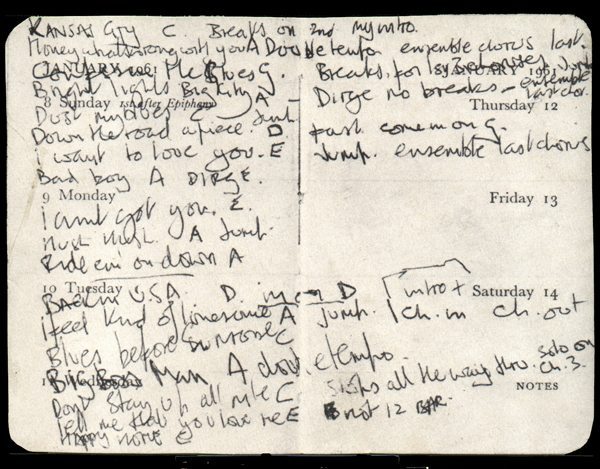 KANSAS City C. Breaks on 2nd my intro.
Honey whats wrong with you A Double tempo ensemble chorus last.
JANUARY JANUARY
Confessin the Blues G. Breaks for
Bright lights Big City A Dirge no breaks - ensemble last chor.
8 Sunday 1st after Epiphany Thursday 12
Dust my blues
Down the road apiece. Jump. D
I want to love you. E Jump. ensemble last chorus
Bad boy A DIRGE.
9 Monday Friday 13
I aint got you. E.
Hush Hush. A Jump.
Ride em' on down A
10 Tuesday Saturday 14
Back in USA. D. in D intro +
I feel kind of lonesome A Jump. 1 ch. in ch. out
Blues before sunrise C
Big Boss Man A double tempo. solo on
Wednesday NOTES
Dont Stay up all nite C all the way thro. ch. 3.
Tell me that you love me E not 12 BAR.
Happy home E